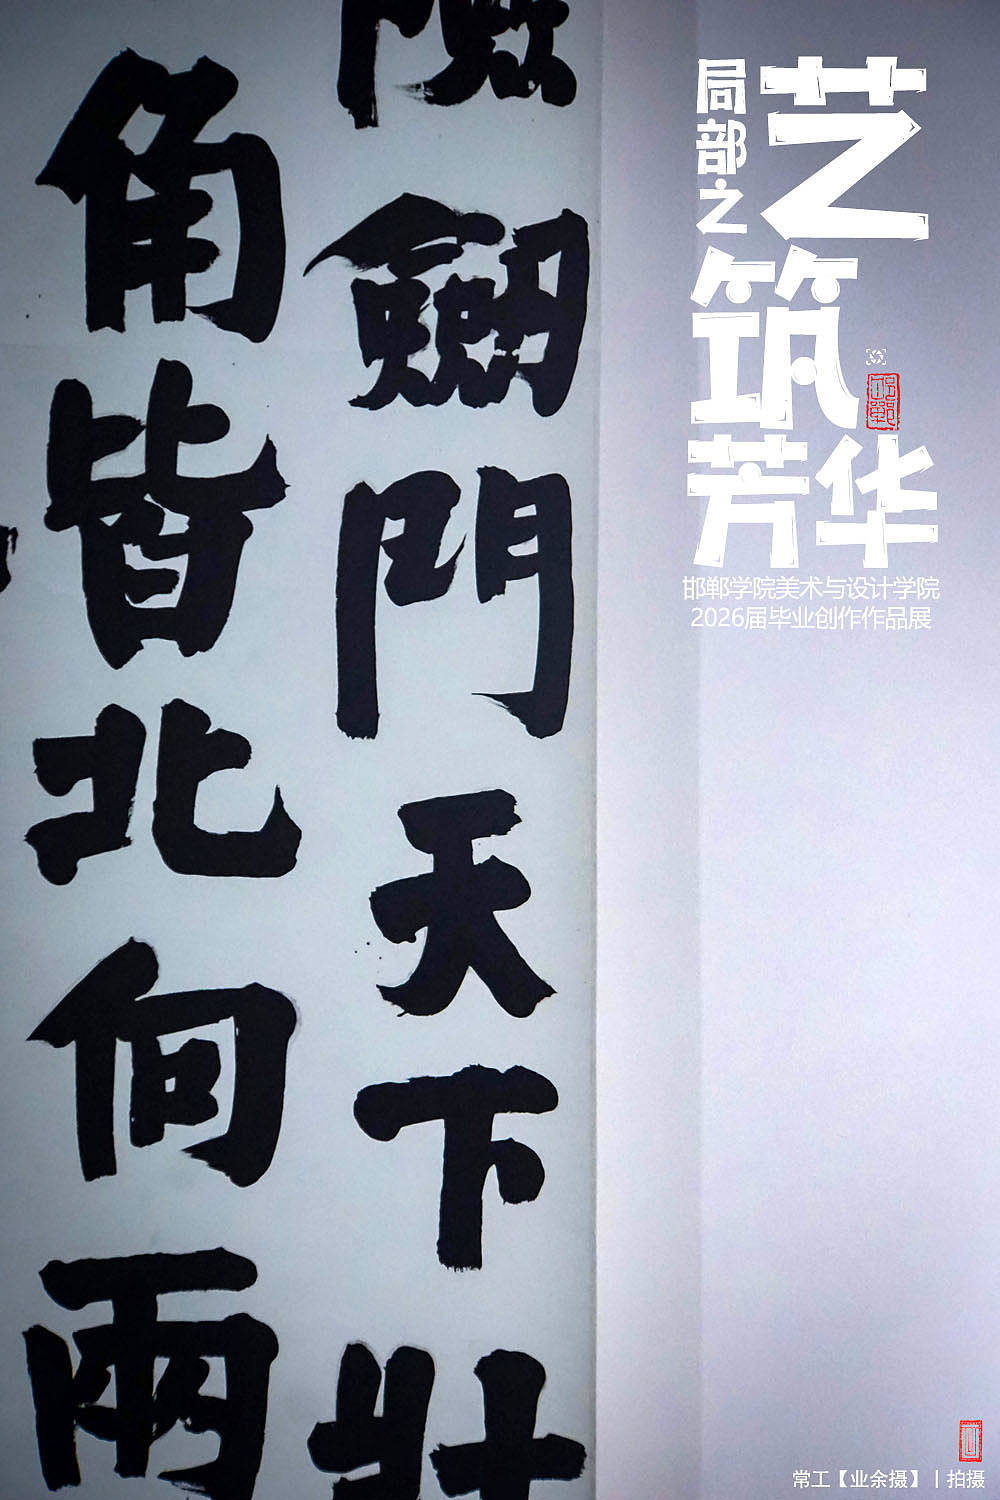 局部之
艺
筑
芳华
邯郸
邯郸学院美术与设计学院
2026届毕业创作作品展
險劒門天下壯
角皆北向兩
常工【业余摄】丨拍摄